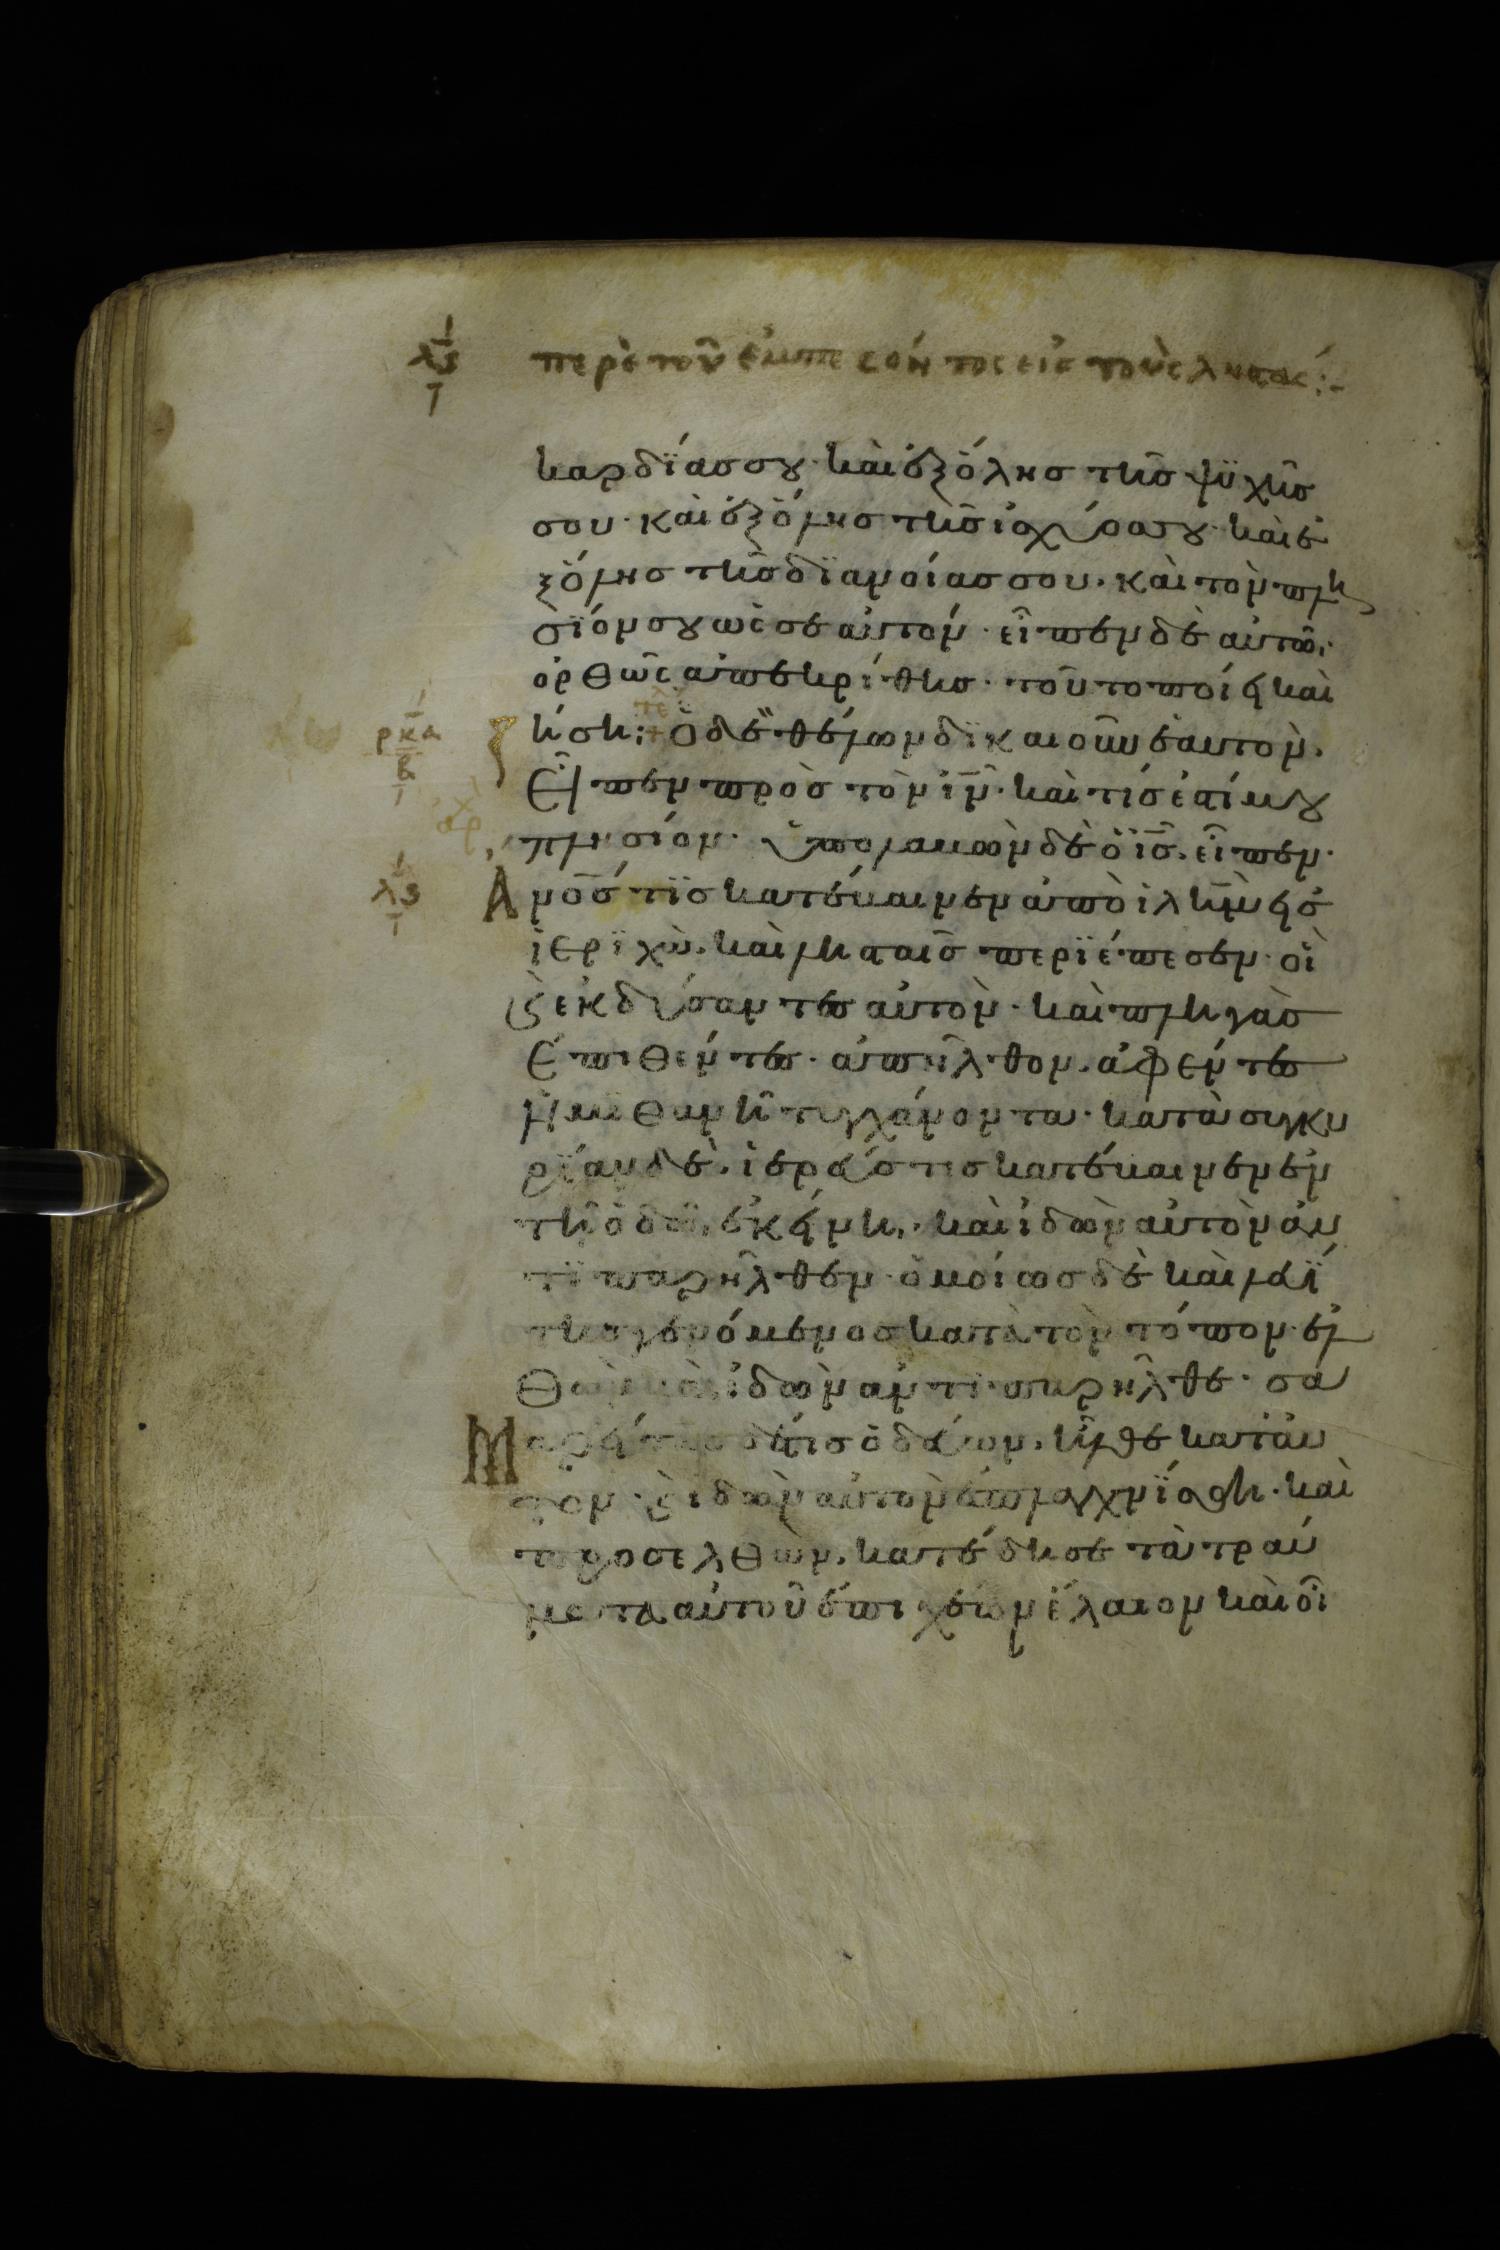 λϛ περὶ τοῦ ἐμπεσόντος εἰς τοὺς ληστάς:-
καρδίας σου· καὶ ἐξ ὅλης τῆς ψϋχῆς
σου· καὶ ἐξ ὅλης τῆς ἰσχύος σου· καὶ ἐ
ξ ὅλης τῆς δϊανοίας σου. καὶ τὸν πλη
σϊόν σου ὡς σεαυτόν· εἶπεν δὲ αὐτῶ.
ὀρθῶς ἀπεκρίθης· τοῦτο ποίει καὶ
ρκα β
ζήση; ὁ δὲ θέλων δϊκαιοῦν ἑαυτὸν.
Εἶπεν πρὸς τὸν ιν̅· καὶ τίς ἐστί μου
πλησίον· ὑπολαβὼν δὲ ὁ ισ̅. εἶπεν·
λϛ
Ανο̅ς τϊς κατέβαινεν ἀπὸ ιλη̅μ εἰς
ἱερϊχὼ. καὶ λησταῖς περϊέπεσεν· οἳ
καὶ ἐκδύσαντες αὐτὸν· καὶ πληγὰς
ἐπιθέντες· ἀπῆλθον. ἀφέντες
ἡμιθανῆ τυγχάνοντα· κατὰ συγκυ
ρϊαν δὲ. ἱερεύς τις κατέβαινεν ἐν
τῆ ὁδῶ ἐκείνη. καὶ ἰδὼν αὐτὸν ἀν
τϊπαρῆλθεν· ὁμοίως δὲ καὶ λευΐ
της γενόμενος κατὰ τὸν τόπον. ἐλ
θὼν καὶ ἰδὼν ἀντιπαρῆλθε· σα
Μαρείτης δέ τις ὁδεύων. ἦλθε κατ' αὐ
τὸν· καὶ ἰδὼν αὐτὸν ἐσπλαγχνΐσθη· καὶ
προσελθὼν. κατέδησε τὰ τραύ
ματα αὐτοῦ ἐπιχέων ἔλαιον καὶ οἶ